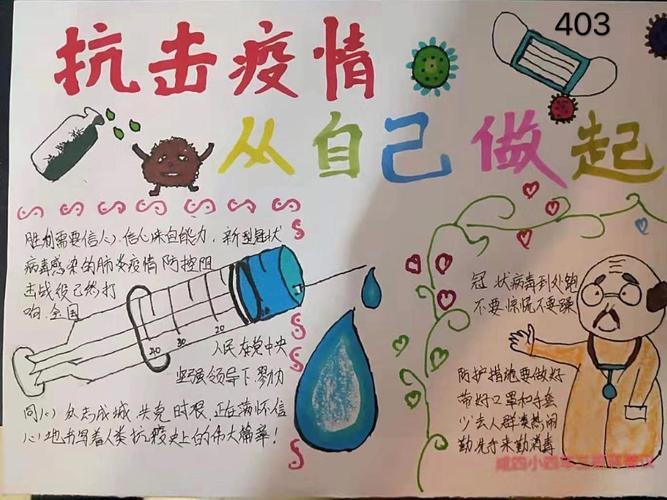 403
抗击疫情
从自己做起
胜利需要信心,信心来自能力,新型冠状
病毒感染的肺炎疫情防控阻
击战役已经打
响.全国
30 20
人民在党中央
坚强领导下勠力
同心 众志成城 共克时艰,正在满怀信
心地书写着人类抗疫史上的伟大篇章!
冠状病毒到处跑
不要惊慌不要躁
防护措施要做好
带好口罩和手套
少去人群凑热闹
勤洗手来勤消毒
咸四小四年